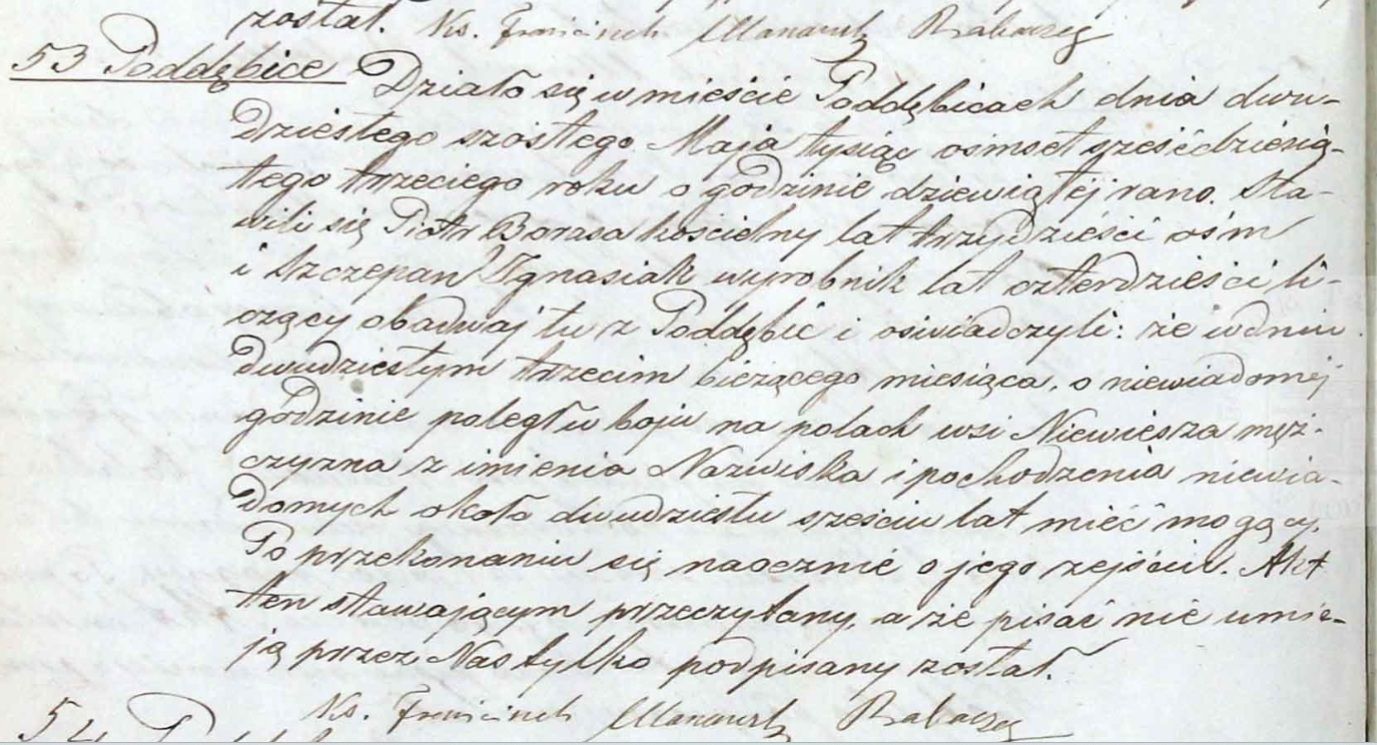 został. Ks.
53 Poddębice Działo się w mieście Poddębicach dnia dwu-
dziestego szóstego Maja tysiąc ośmset sześćdziesią-
tego trzeciego roku o godzinie dziewiątéj rano. Sta-
wili się Piotr Borasa kościelny lat trzydzieści ośm
i Szczepan Ignasiak wyrobnik lat czterdzieści li-
czący obadwaj tu z Poddębic i oświadczyli: że w dniu
dwudziestym trzecim bieżącego miesiąca, o niewiadomej
godzinie poległ w boju na polach wsi Niewiesza męż-
czyzna z imienia Nazwiska i pochodzenia niewia-
domych około dwudziestu sześciu lat mieć mogący.
Po przekonaniu się naocznie o jego zejściu. Akt
ten stawającym przeczytany, a że pisać nie umie-
ją przez Nas tylko podpisany został.
Ks.
54